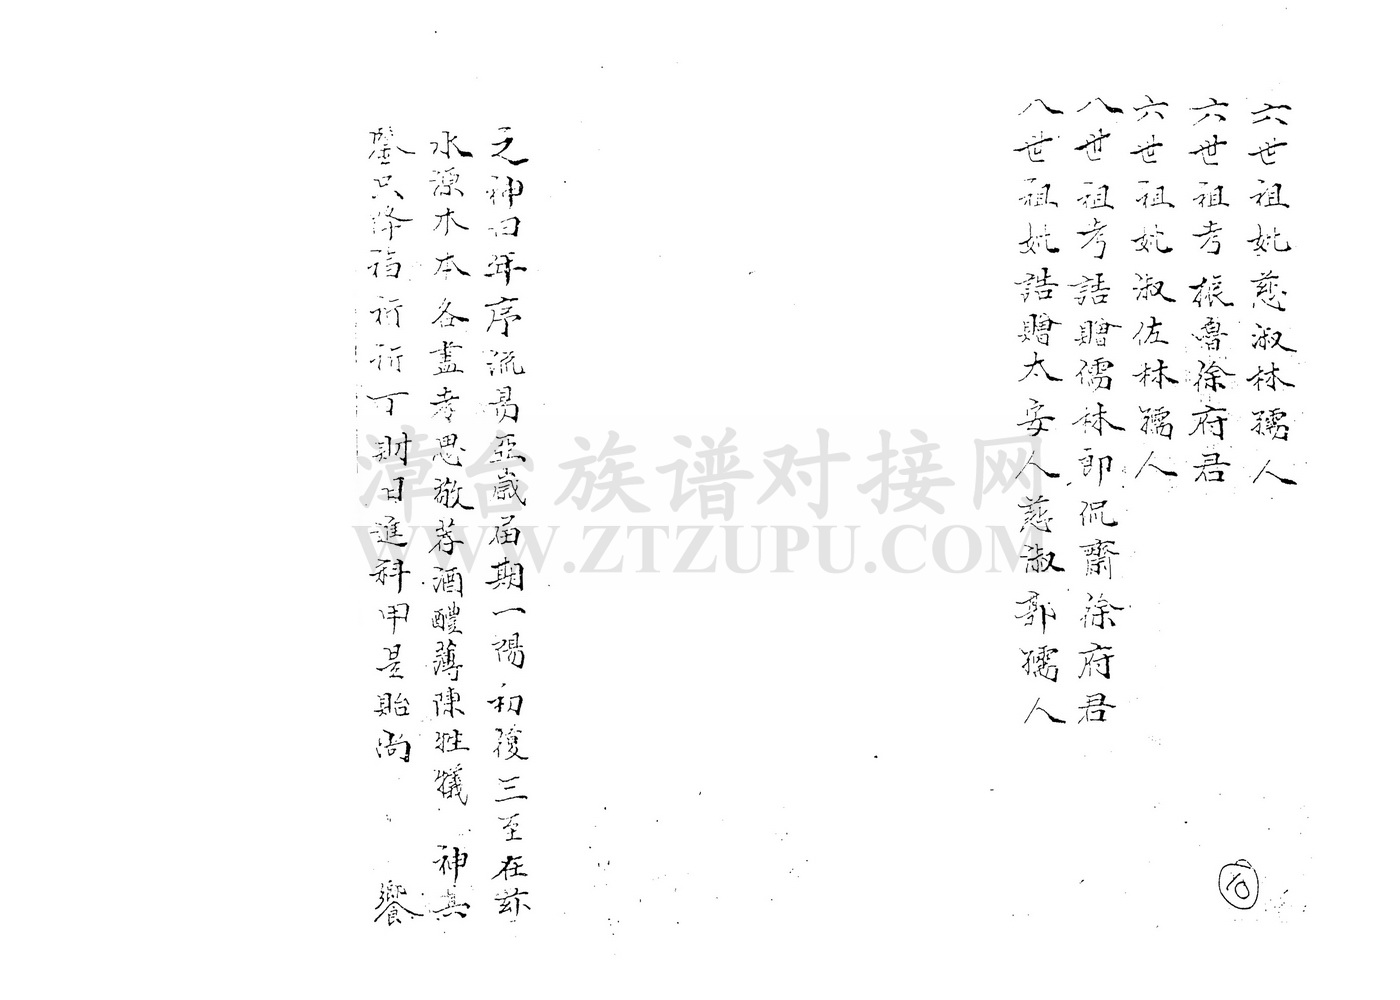 六世祖妣慈淑林孺人
六世祖考振魯徐府君
六世祖妣淑佐林孺人
八世祖考誥贈儒林郎侃齋徐府君
八世祖妣誥贈太安人慈淑郭孺人
之神曰年序流易亞歲届期一陽初復三至在茲
水源木本各盡孝思敬荐酒醴薄陳牲犧 神其
鑒只降福祈祈丁財日進科甲是貽尚 饗
漳台族谱对接网
WWW.ZTZUPU.COM